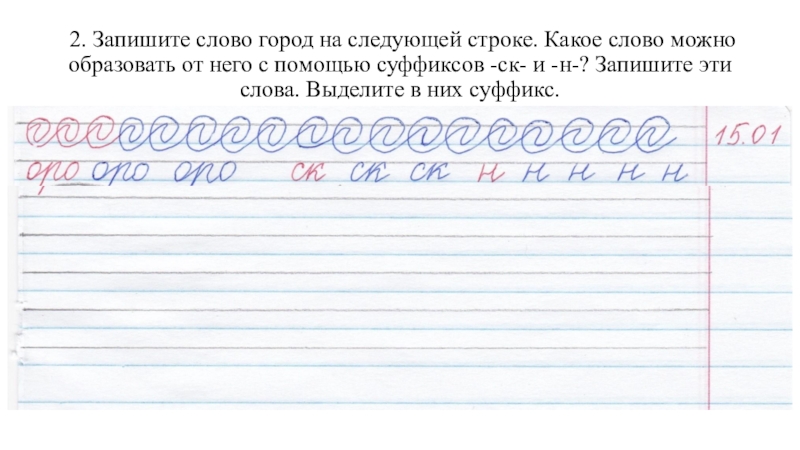 2. Запишите слово город на следующей строке. Какое слово можно
образовать от него с помощью суффиксов -ск- и -н-? Запишите эти
слова. Выделите в них суффикс.
15.01
оро оро оро ск ск ск н н н н н